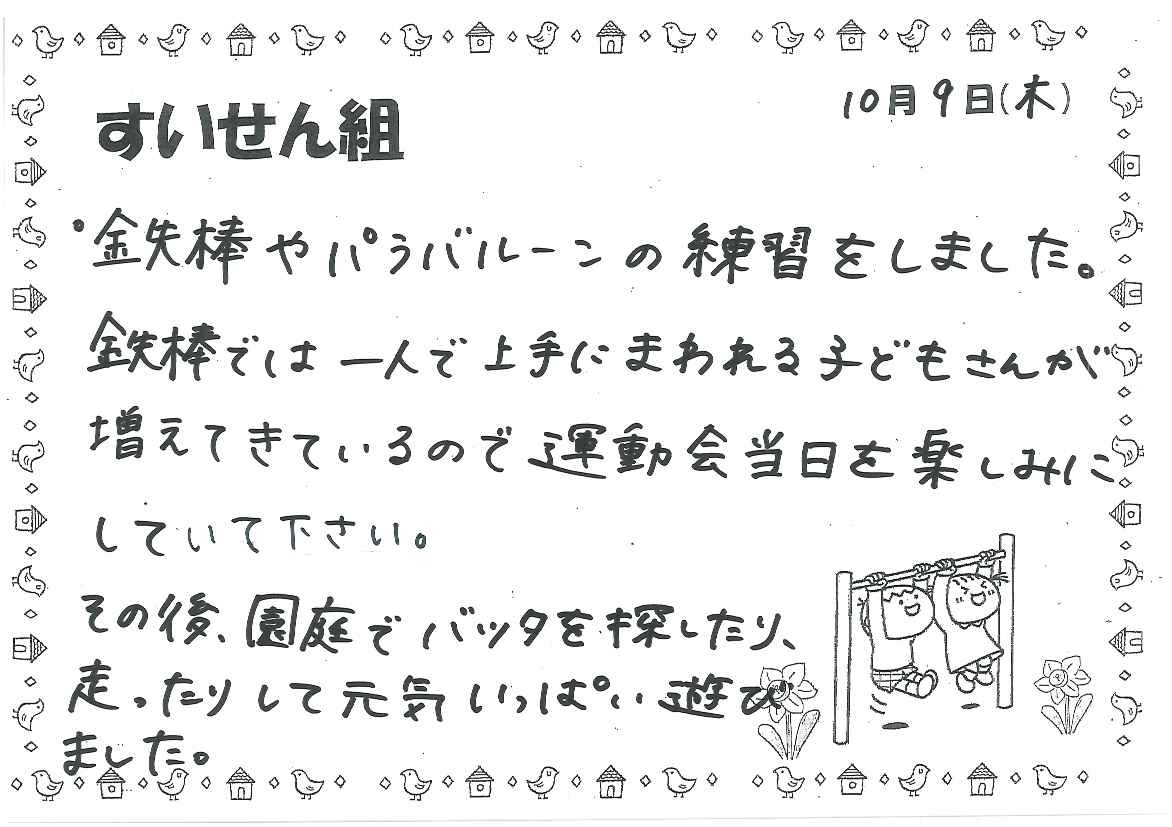 10月9日(木)
すいせん組
・鉄棒やパラバルーンの練習をしました。
鉄棒では一人で上手にまわれる子どもさんが
増えてきているので運動会当日を楽しみに
していて下さい。
その後、園庭でバッタを探したり、
走ったりして元気いっぱい遊び
ました。